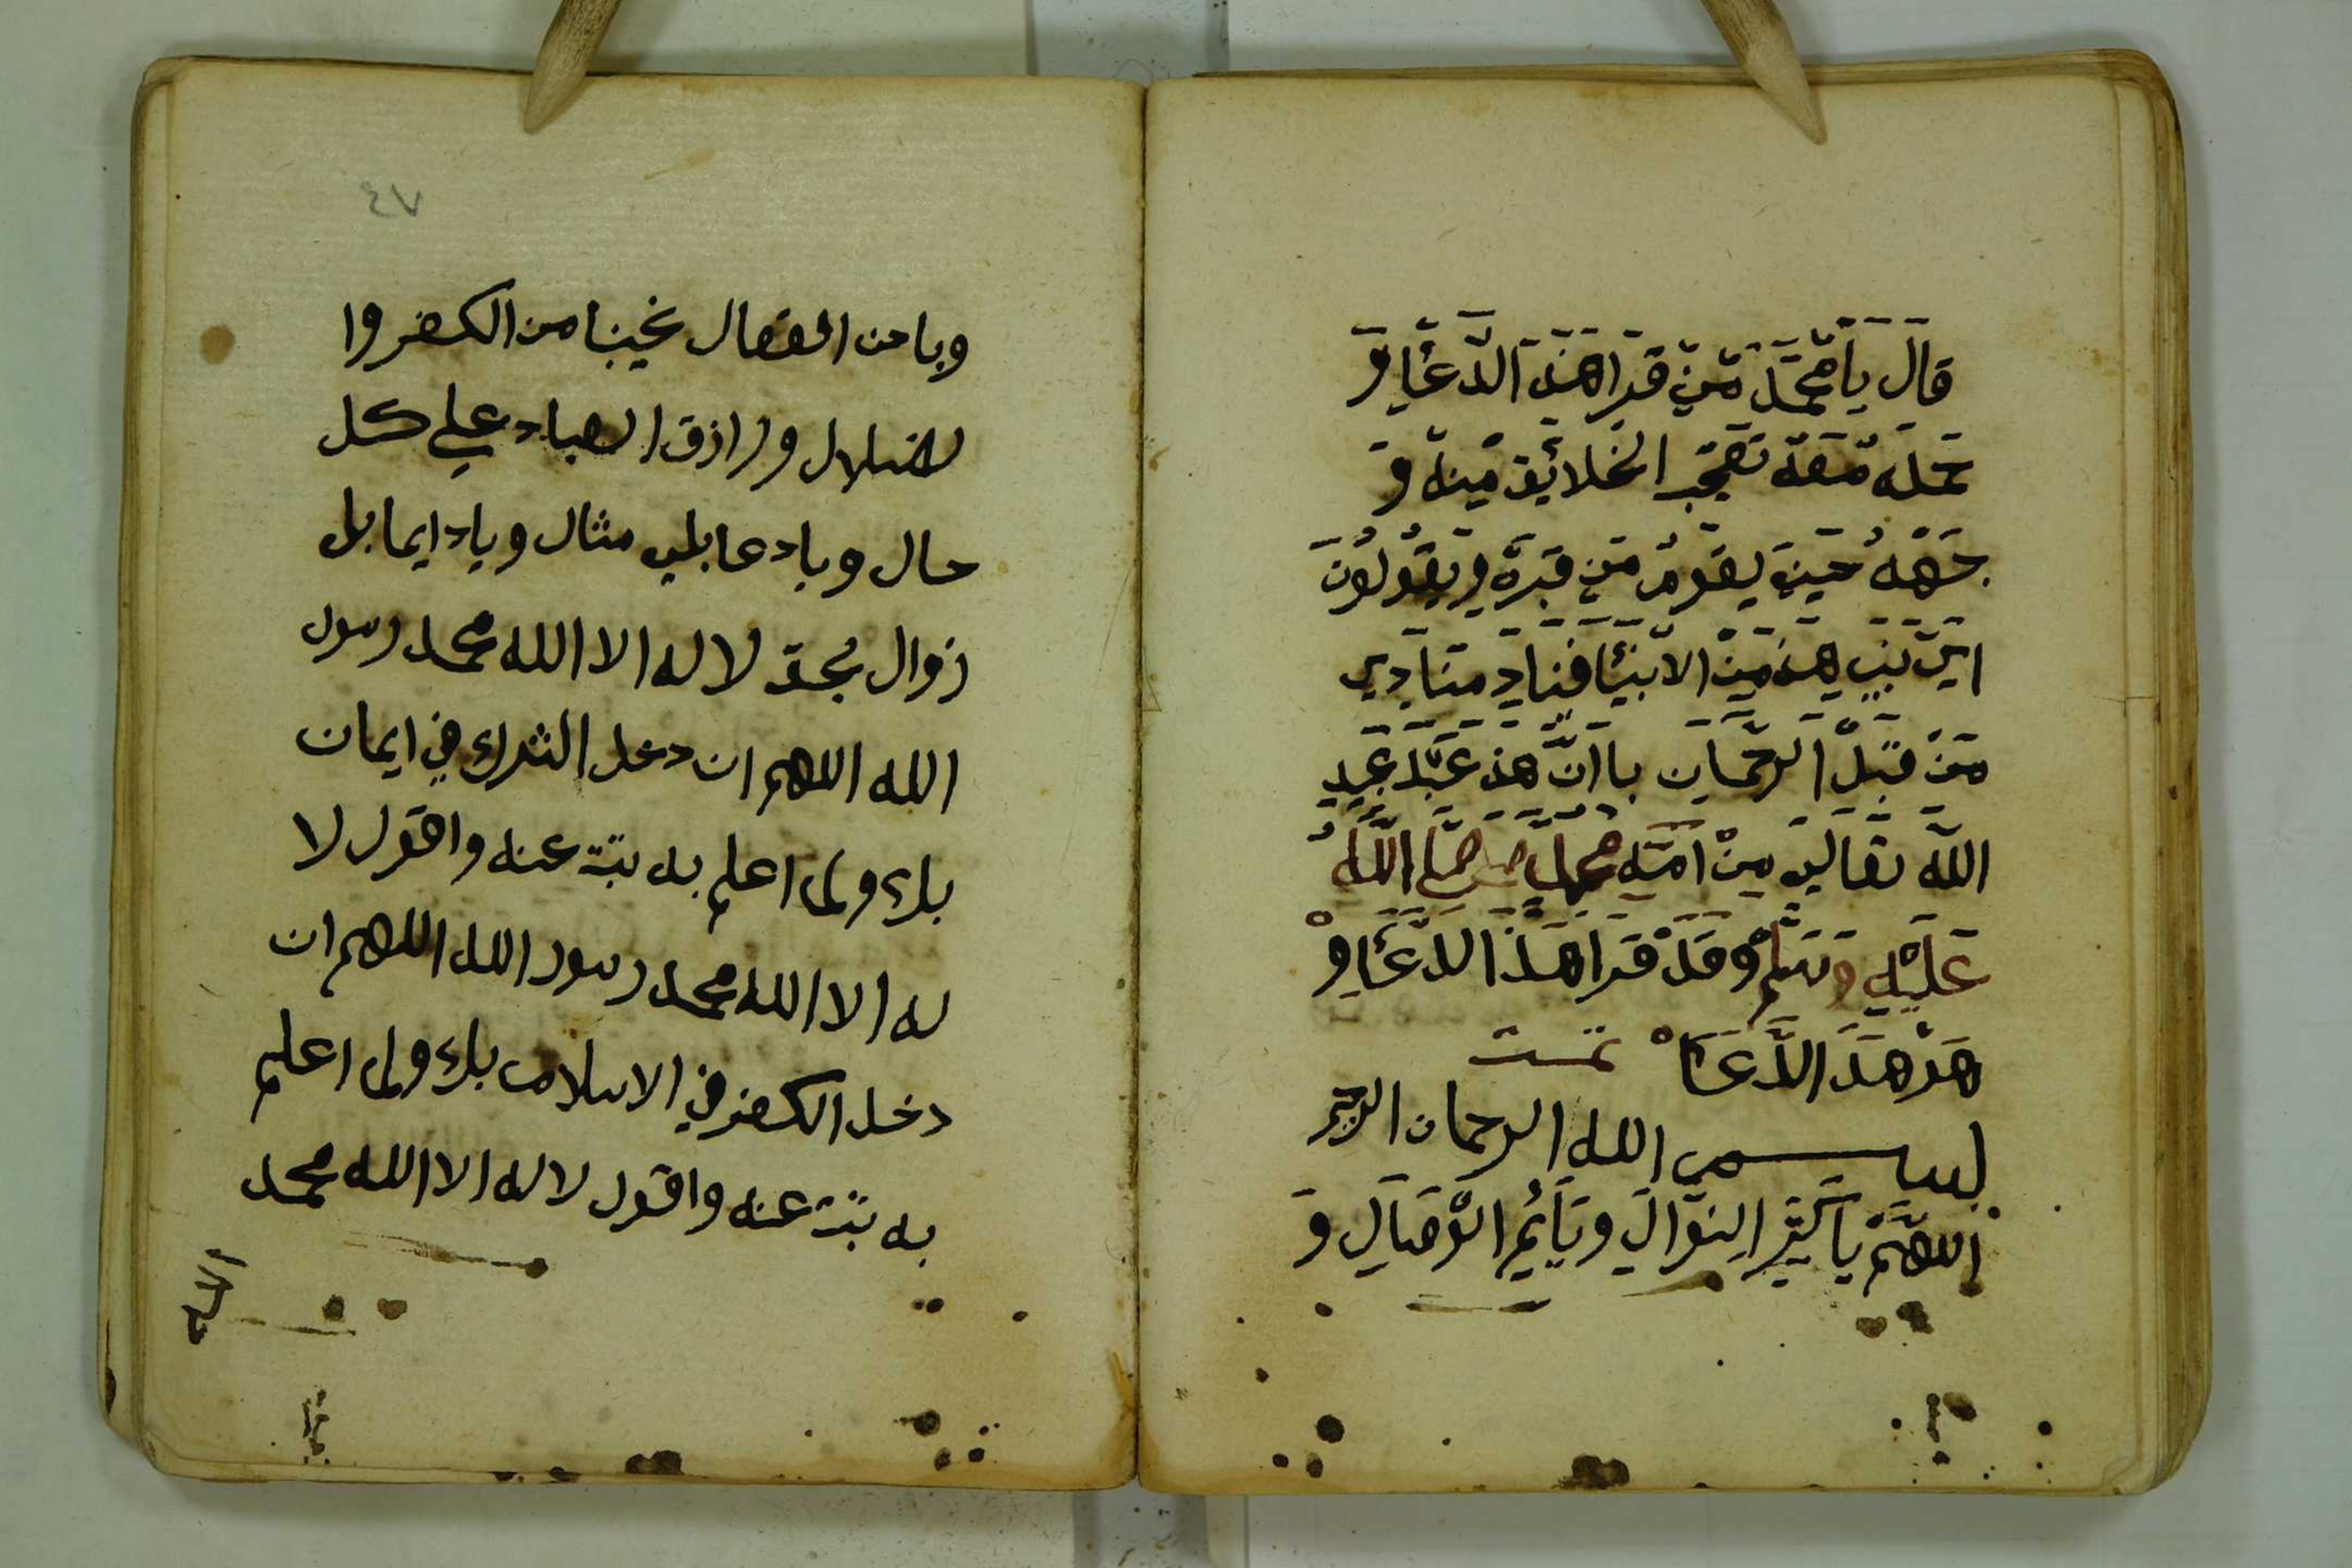 قال يا محمد من قرا هذا الدعا و
حمله معه تعجب الخلايق منه و
جهه حين يقوم من قبره و يقولون
اين نبي هذ من الانبيا فناد منادي
من قبل الرحمان با ان هذ عبد عبيد
الله تعالي من امة محمد صلي الله
عليه وسلم وقد قرا هذا الدعا و
هذ هذا الدعا تمت
بسم الله الرحمان الرحيم
اللهم يا كثير النوال و يا دايم الوصال و
٤٧
ويا حسن الفعال نجينا من الكفر وا
لضلال و رازق العباد علي كل
حال ويا د عا بلي مثال ويا دايما بل
زوال بحق لا اله الا الله محمد رسول
الله اللهم ان دخل الشرك في ايمان
بك ولم اعلم به تبت عنه واقول لا
له الا الله محمد رسول الله اللهم ان
دخل الكفر في الاسلام بك ولم اعلم
به تبت عنه واقول لا اله الا الله محمد